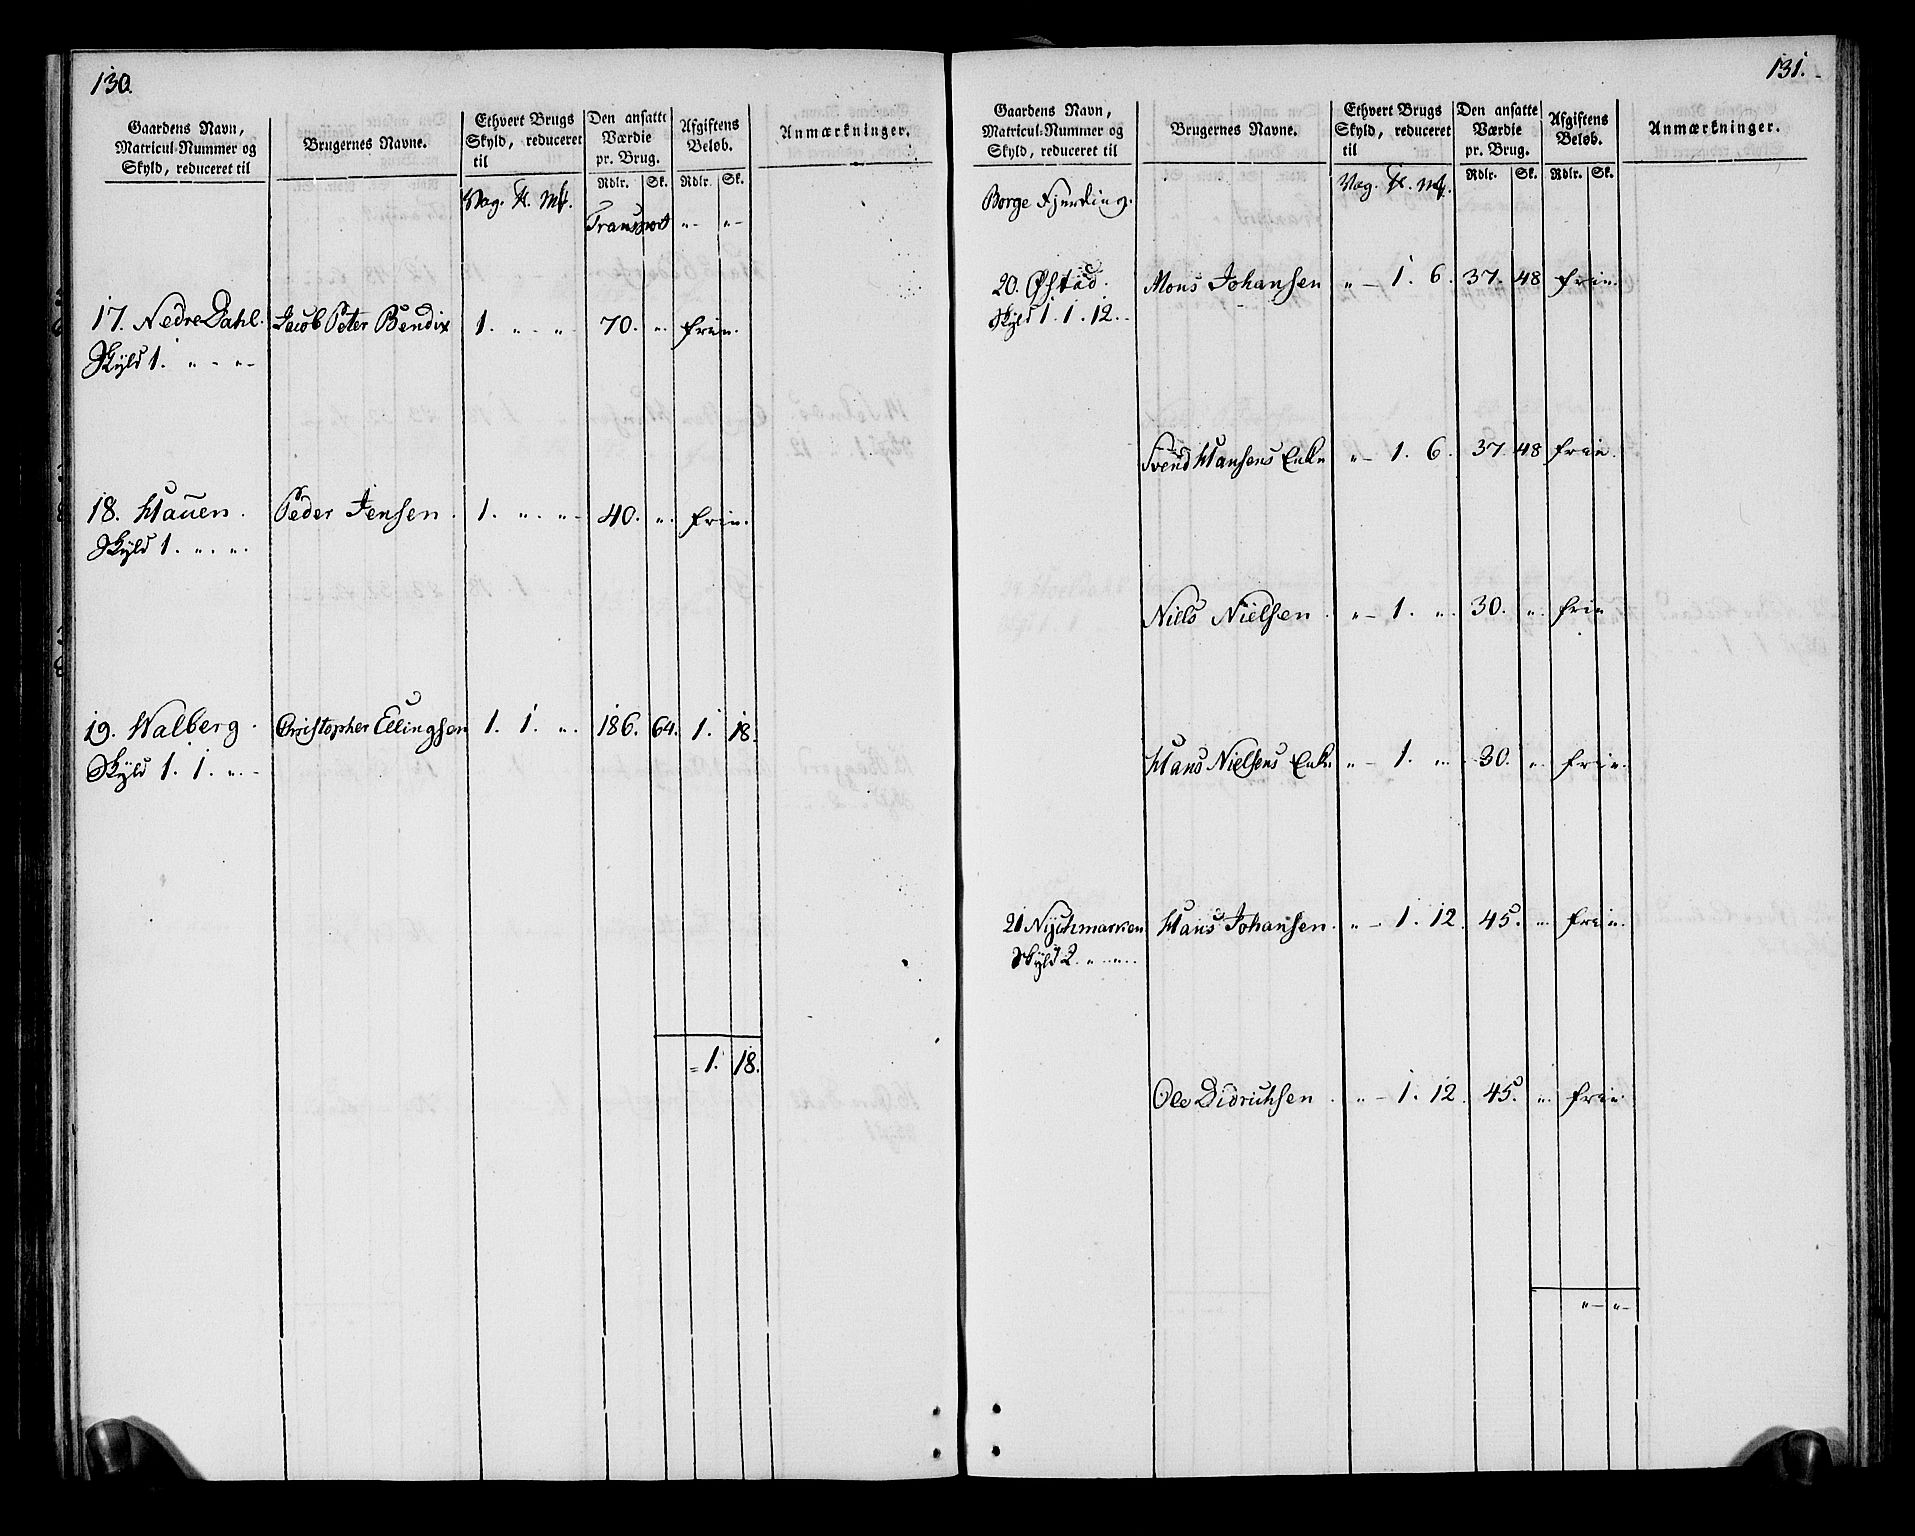 130.
Gaardens Navn, Matricul-Nummer og Skyld, reduceret til
Brugernes Navne.
Ethvert Brugs Skyld, reduceret til
Den ansatte Værdie pr. Brug.
Afgiftens Beløb.
Anmærkninger.
Rdlr. Sk. Rdlr. Sk.
Vog. ℔. Mk.
Transport „- „-
17. Nedre Dahl. Jacob Peter Bendix 1. „. „. 70. „. frie.
Skyld 1. „ - „-
18. Hauen. Peder Jensen. 1. „. „- 40. „. frie.
Skyld 1. „. „.
19. Walberg. Christopher Ellingsen 1. 1. „. 186. 64. 1. 18.
Skyld 1. 1. „.-
= 1. 18.
131.
Gaardens Navn, Matricul-Nummer og Skyld, reduceret til
Brugernes Navne.
Ethvert Brugs Skyld, reduceret til
Den ansatte Værdie pr. Brug.
Afgiftens Beløb.
Anmærkninger.
Rdlr. Sk. Rdlr. Sk.
Vog. ℔. Mk.
Borge Fjerding.
20. Øfstad. Mons Johansen „- 1. 6. 37. 48 frie.
Skyld 1. 1. 12.
Svend Hansens Enke „- 1. 6. 37 48 frie.
Niels Nielsen. „- 1. „. 30. „. frie
Hans Nielsens Enke „- 1. „. 30. „. frie.
21 Nychmarken Hans Johansen. „- 1. 12. 45. „. frie.
Skyld 2. „. „.
Ole Didrichsen. „- 1. 12. 45. „. frie.
„- „-